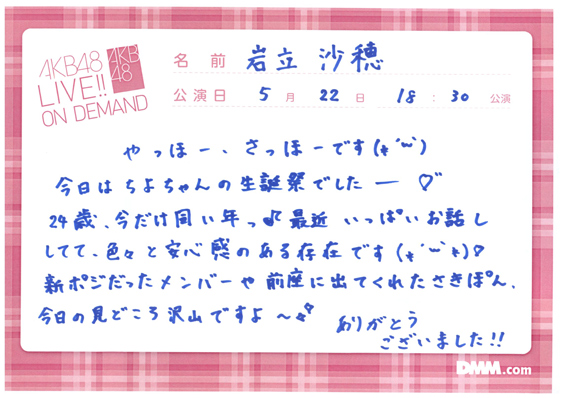 AKB48
LIVE!!
ON DEMAND
AKB
48
名前 岩立 沙穂
公演日 5月 22日 18:30 公演
やっほー、さっほーです(*´꒳`)
今日はちよちゃんの生誕祭でしたー♡
24歳、今だけ同い年っ♪最近 いっぱいお話し
してて、色々と安心感のある存在です(*´꒳`*)♡
新ポジだったメンバーや前座に出てくれたさきぽん、
今日の見どころ沢山ですよ〜
ありがとう
ございました!!
DMM.com